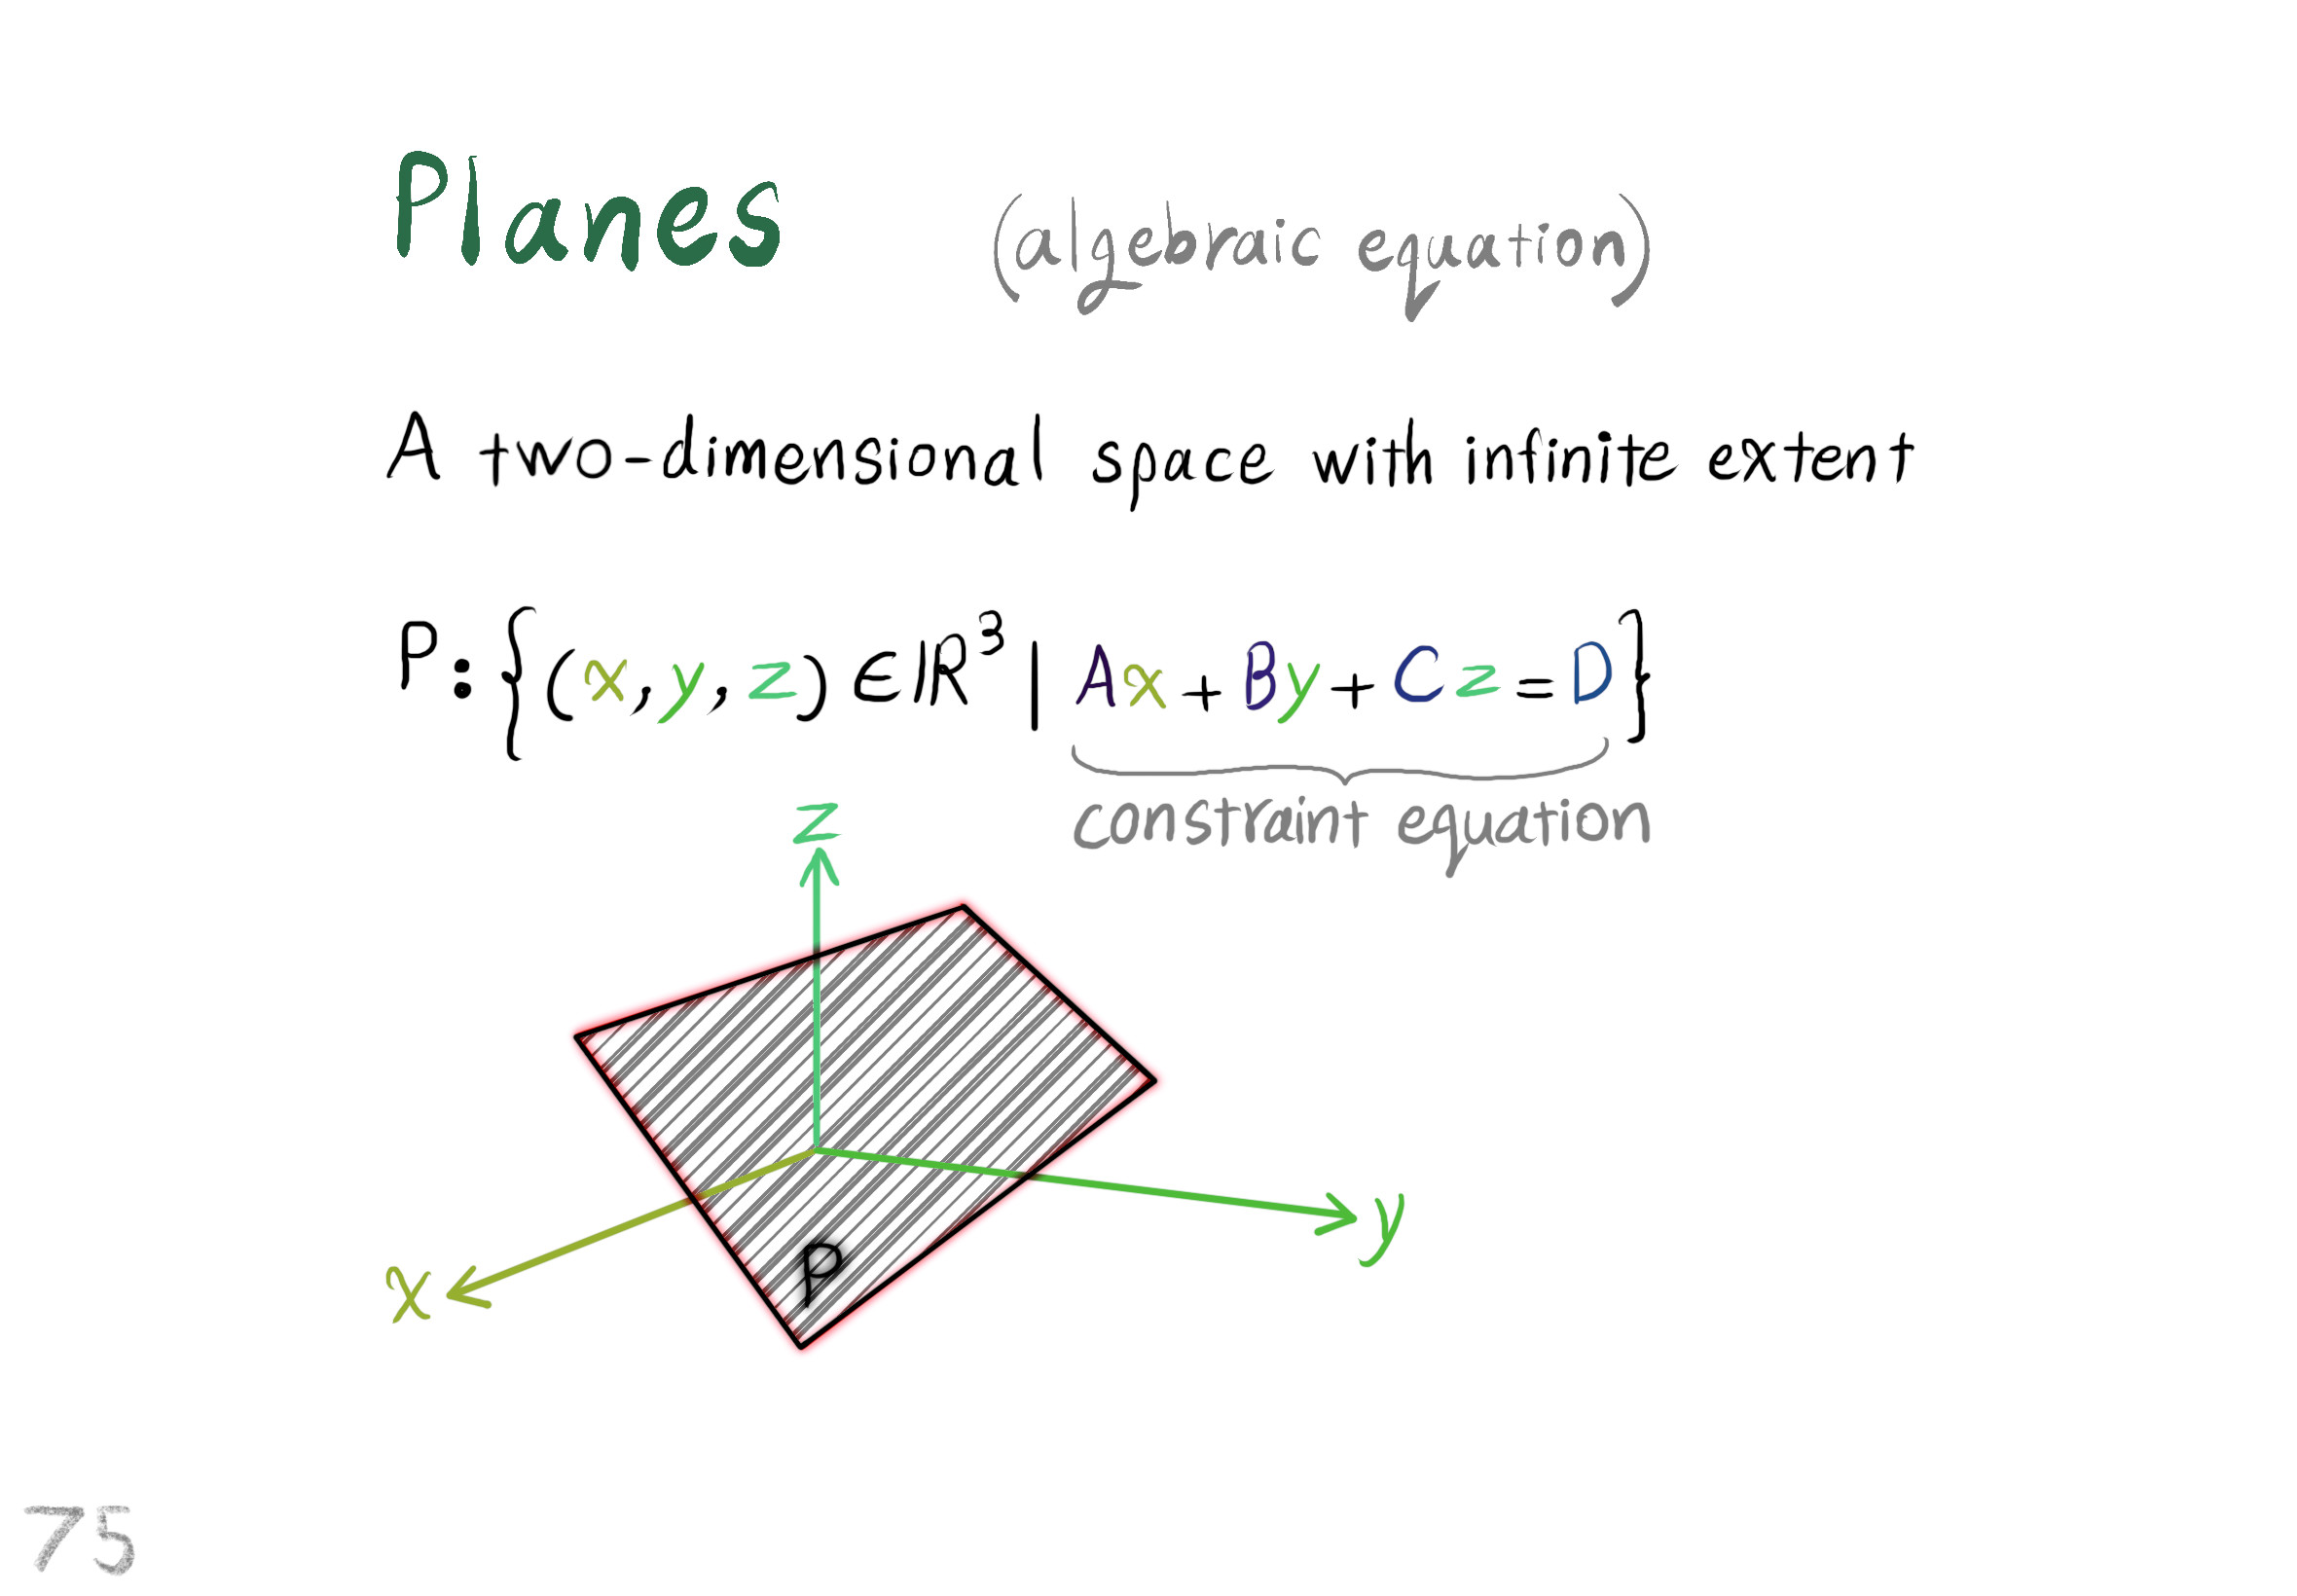 Planes (algebraic equation)
A two-dimensional space with infinite extent
P:{(x,y,z)∈ℝ³|Ax+By+Cz=D}
constraint equation
z
P
y
x
75